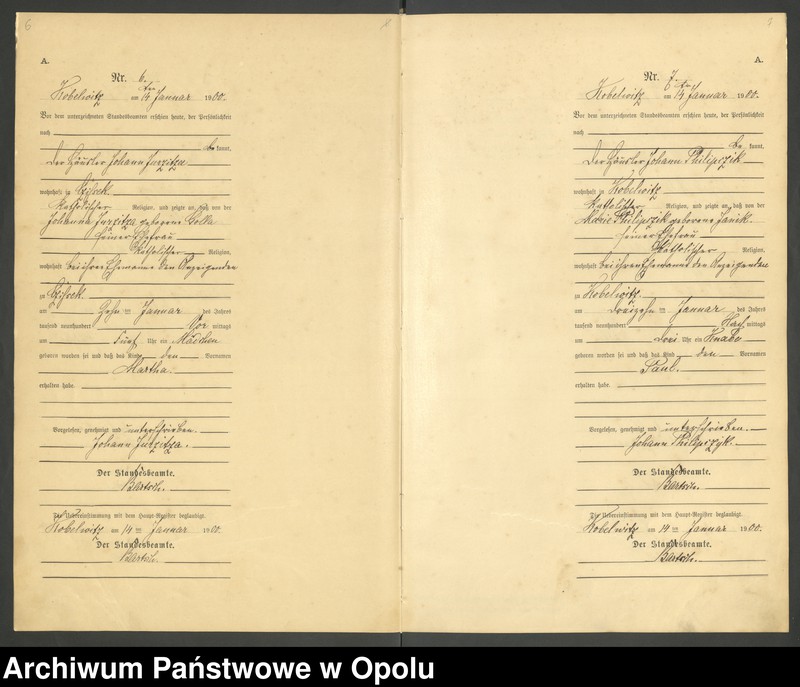 6
A.
Nr. 6.
Kobelwitz am 14 ten Januar 1900.
Vor dem unterzeichneten Standesbeamten erschien heute, der Persönlichkeit
nach
be kannt,
der Häusler Johann
wohnhaft zu
katholischer Religion, und zeigte an, daß von der
Johanna geborene
seiner Ehefrau
katholischer Religion,
wohnhaft bei ihrem Ehemanne dem Anzeigenden
zu
am Zehn ten Januar des Jahres
tausend neunhundert Vor mittags
um Fünf Uhr ein Mädchen
geboren worden sei und daß das Kind den Vornamen
Martha.
erhalten habe.
Vorgelesen, genehmigt und unterschrieben.
Johann
Der Standesbeamte.
Die Uebereinstimmung mit dem Haupt-Register beglaubigt.
Kobelwitz am 14 ten Januar 1900.
Der Standesbeamte.
7
A.
Nr. 7.
Kobelwitz am 14 ten Januar 1900.
Vor dem unterzeichneten Standesbeamten erschien heute, der Persönlichkeit
nach
be kannt,
der Häusler Johann Philipczik
wohnhaft zu Kobelwitz
katholischer Religion, und zeigte an, daß von der
Marie Philipczik geborene Janik.
seiner Ehefrau
katholischer Religion,
wohnhaft bei ihrem Ehemanne dem Anzeigenden
zu Kobelwitz.
am dreizehn ten Januar des Jahres
tausend neunhundert Nach mittags
um drei Uhr ein Knabe
geboren worden sei und daß das Kind den Vornamen
Paul.
erhalten habe.
Vorgelesen, genehmigt und unterschrieben.
Johann Philipczyk.
Der Standesbeamte.
Die Uebereinstimmung mit dem Haupt-Register beglaubigt.
Kobelwitz am 14 ten Januar 1900.
Der Standesbeamte.
Archiwum Państwowe w Opolu